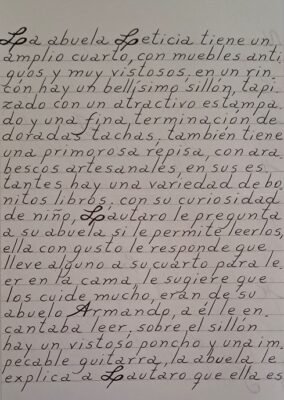 La abuela Leticia tiene un
amplio cuarto, con muebles anti
guos y muy vistosos, en un rin
cón hay un bellísimo sillón, tapi
zado con un atractivo estampa
do y una fina terminación de
doradas tachas, también tiene
una primorosa repisa, con ara
bescos artesanales, en sus es
tantes hay una variedad de bo
nitos libros, con su curiosidad
de niño, Lautaro le pregunta
a su abuela si le permite leerlos,
ella con gusto le responde que
lleve alguno a su cuarto para le
er en la cama, le sugiere que
los cuide mucho, eran de su
abuelo Armando, a él le en
cantaba leer, sobre el sillón
hay un vistoso poncho y una im
pecable guitarra, la abuela le
explica a Lautaro que ella es